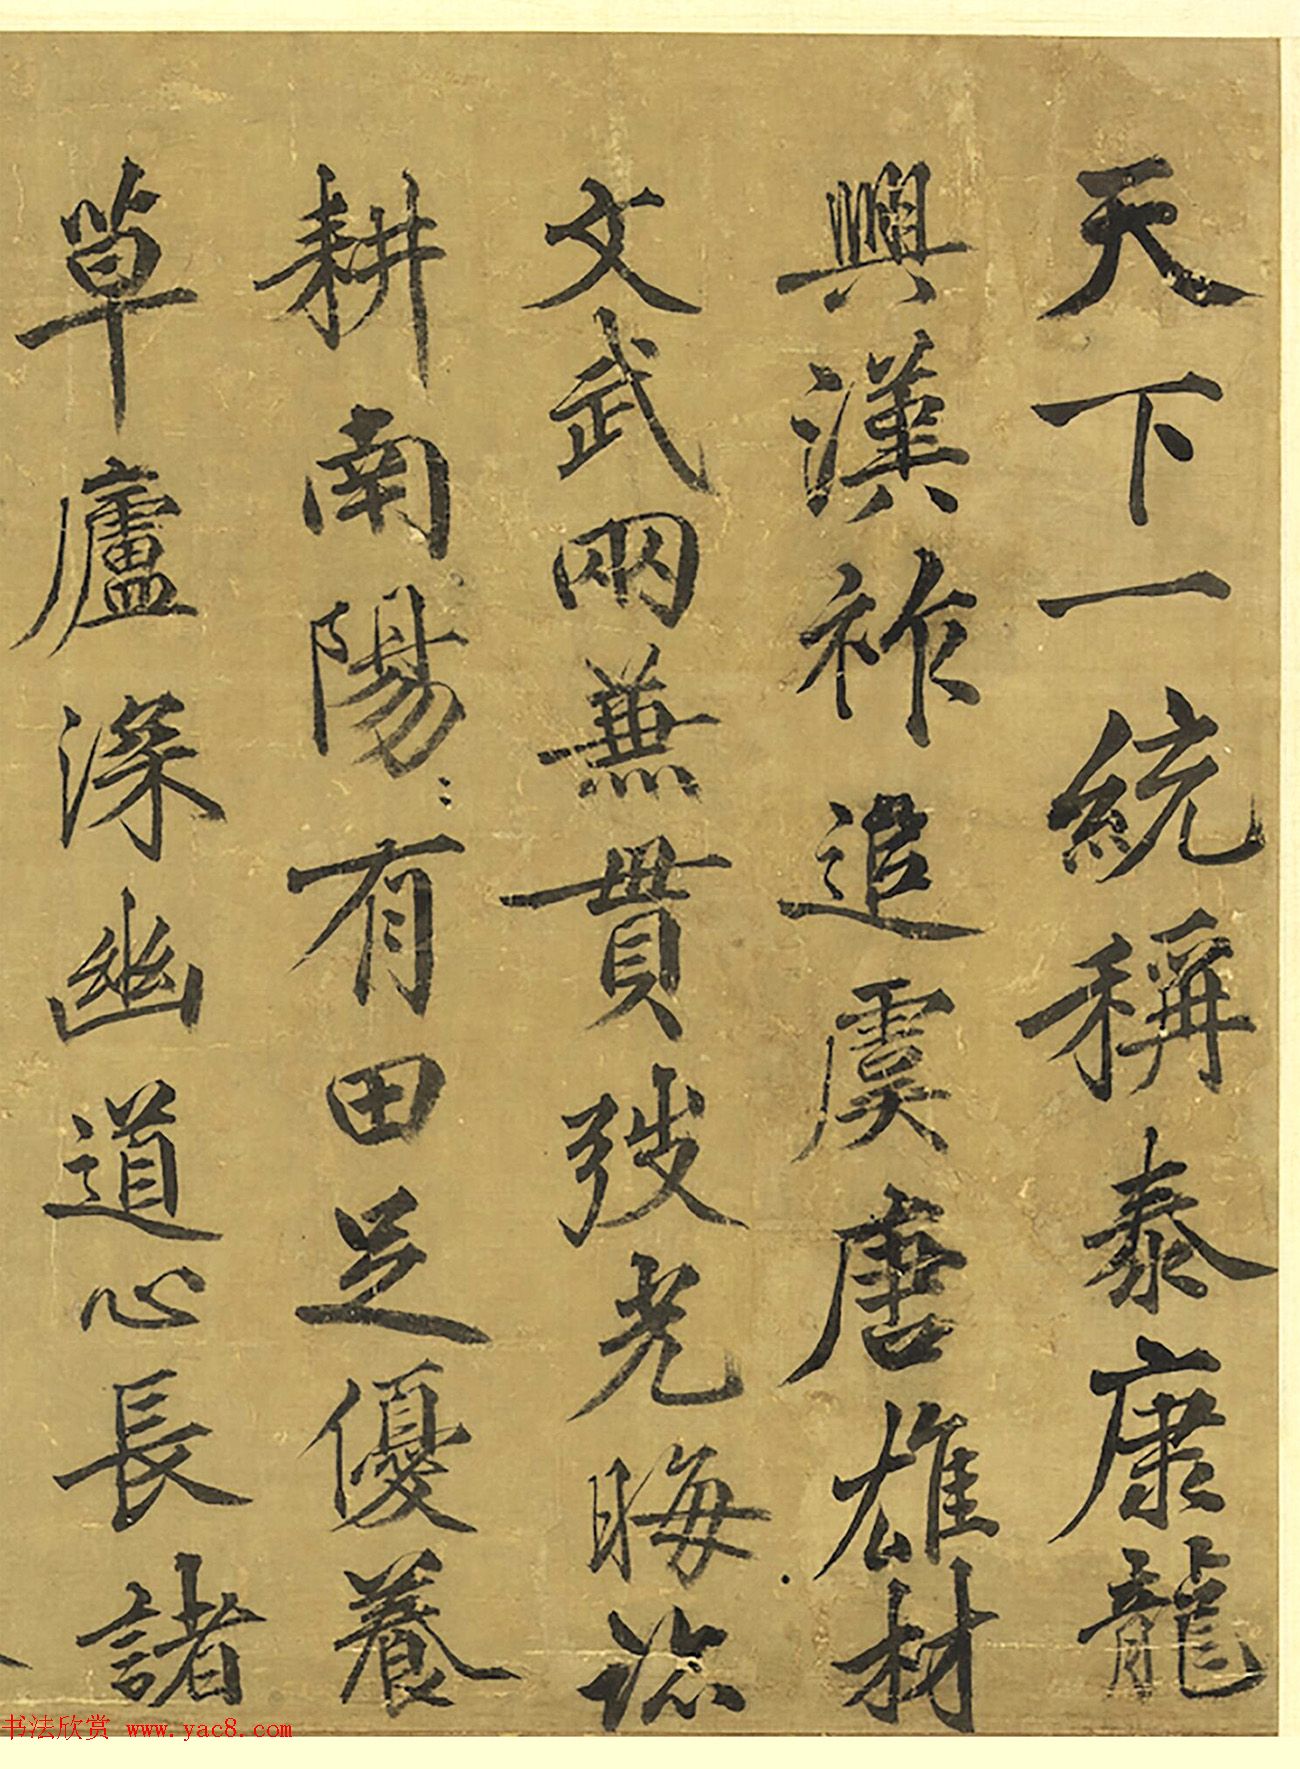 天下一統稱泰康龍
興漢祚追虞唐雄材
文武兩兼貫發光晦迹
耕南陽〻有田足優養
草廬深幽道心長諸
书法欣赏 www.yac8.com